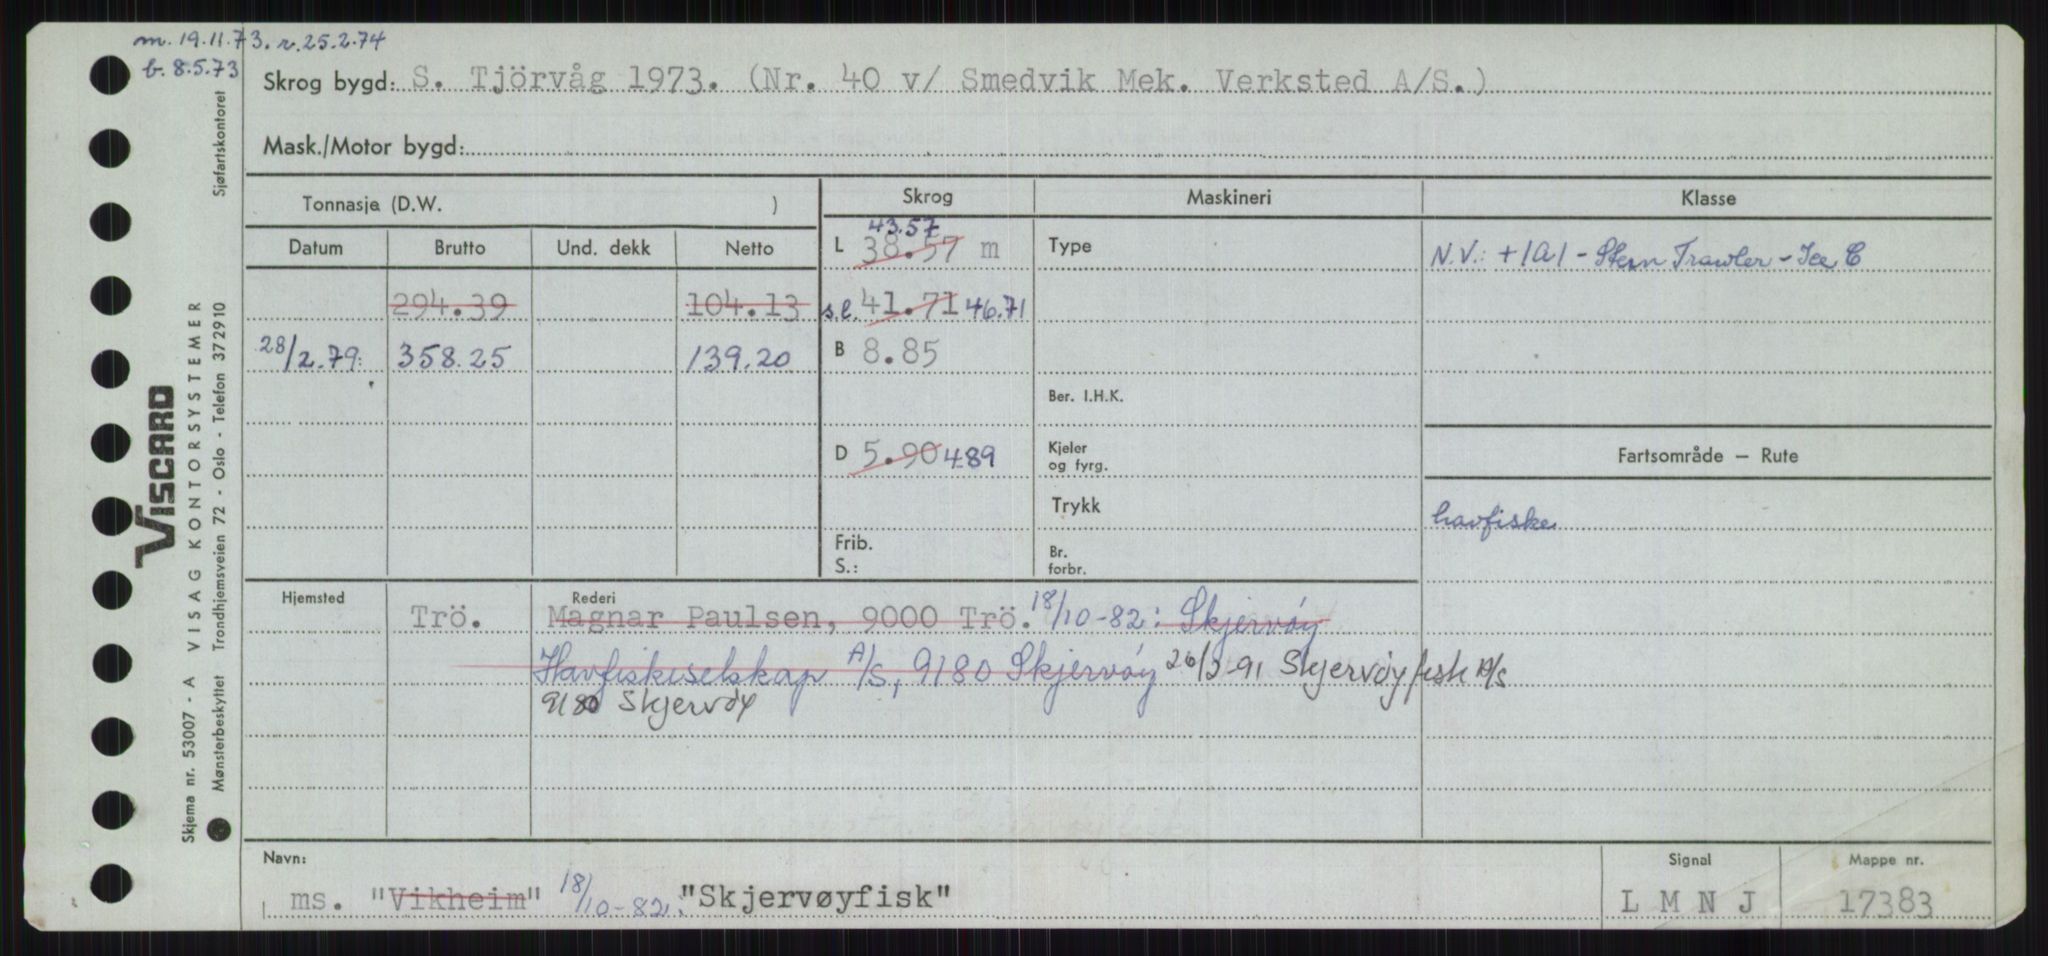 m. 19.11.73. r. 25.2.74
b. 8.5.73
Skrog bygd: S. Tjörvåg 1973. (Nr. 40 v/ Smedvik Mek. Verksted A/S.)
Mask./Motor bygd:
Tonnasje (D.W. )
Skrog Maskineri Klasse
Datum Brutto Und. dekk Netto
43.57
L 38.57 m
Type
N.V.: +1A1 - Stern Trawler - Ice C
294.39 104.13 s.l. 41.71 46.71
28/2.79: 358.25 139.20
B 8.85
Ber. I.H.K.
D 5.90 4.89
Kjeler
og fyrg.
Fartsområde — Rute
Trykk
havfiske
Frib.
S.:
Br.
forbr.
Hjemsted Rederi
Trö. Magnar Paulsen, 9000 Trö. 18/10-82: Skjervöy
Havfiskeselskap A/S, 9180 Skjervöy 26/2-91 Skjervøyfisk A/S
9180 Skjervøy
Navn:
ms. "Vikheim" 18/10-82: "Skjervøyfisk"
Signal
L M N J
Mappe nr.
17383
Viscard
VISAG KONTORSYSTEMER
Skjema nr. 53007 - A
Mønsterbeskyttet Trondhjemsveien 72 - Oslo - Telefon 372910
Sjøfartskontoret